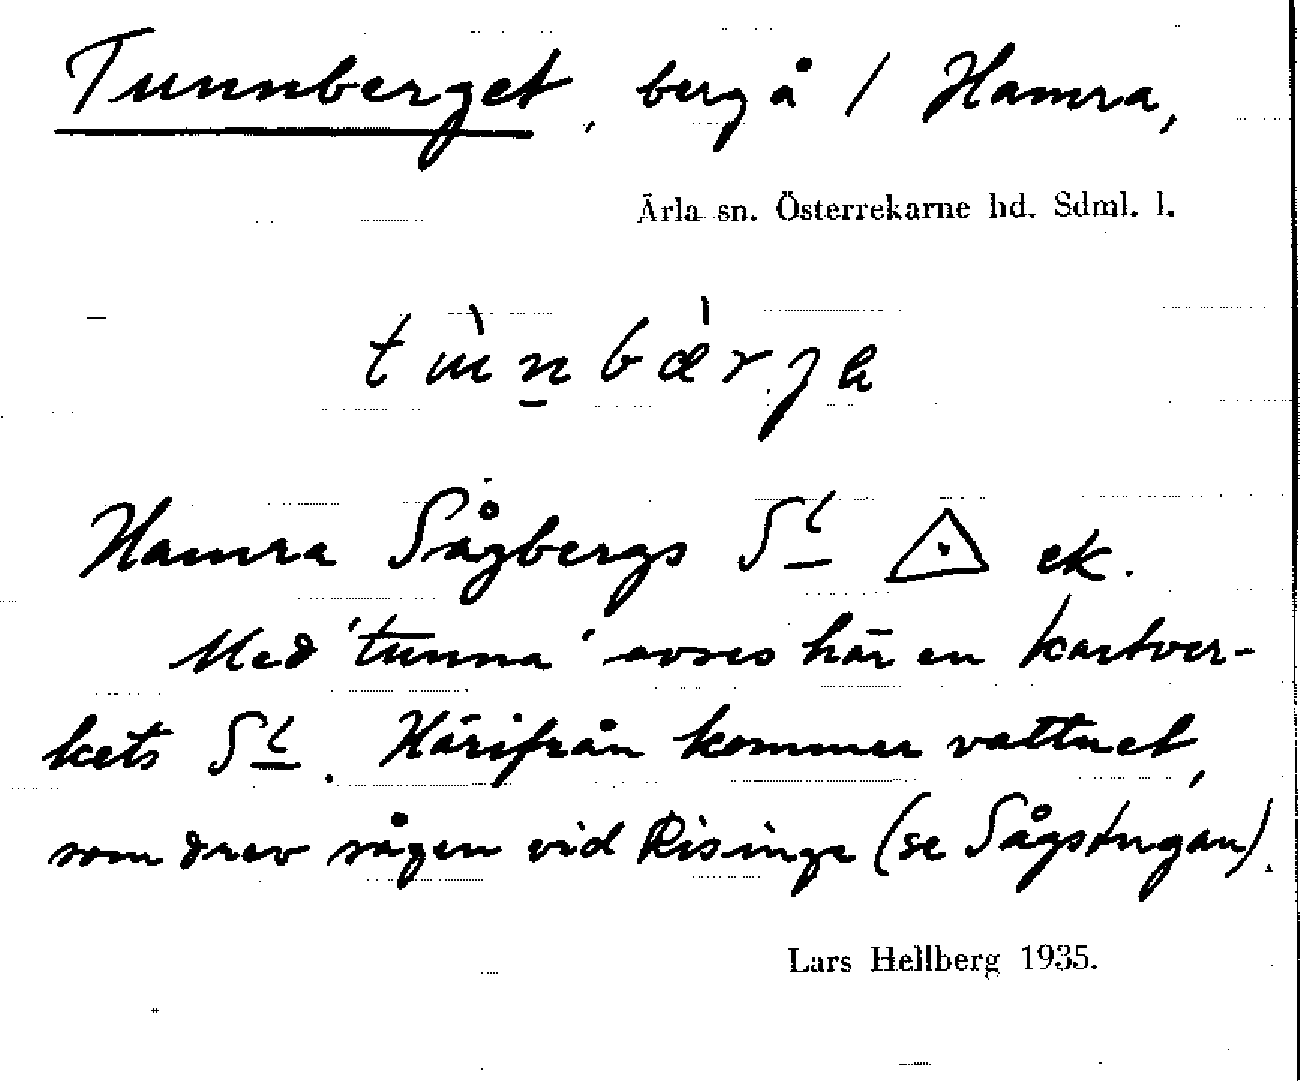 Tunnberget, berg å / Hamra,
Ärla sn. Österrekarne hd. Sdml. l.
Hamra Sågbergs St △ ek.
Med 'tunna' avses här en kartver-
kets St. Härifrån kommer vattnet,
som drev sågen vid Risinge (se Sågstugan).
Lars Hellberg 1935.